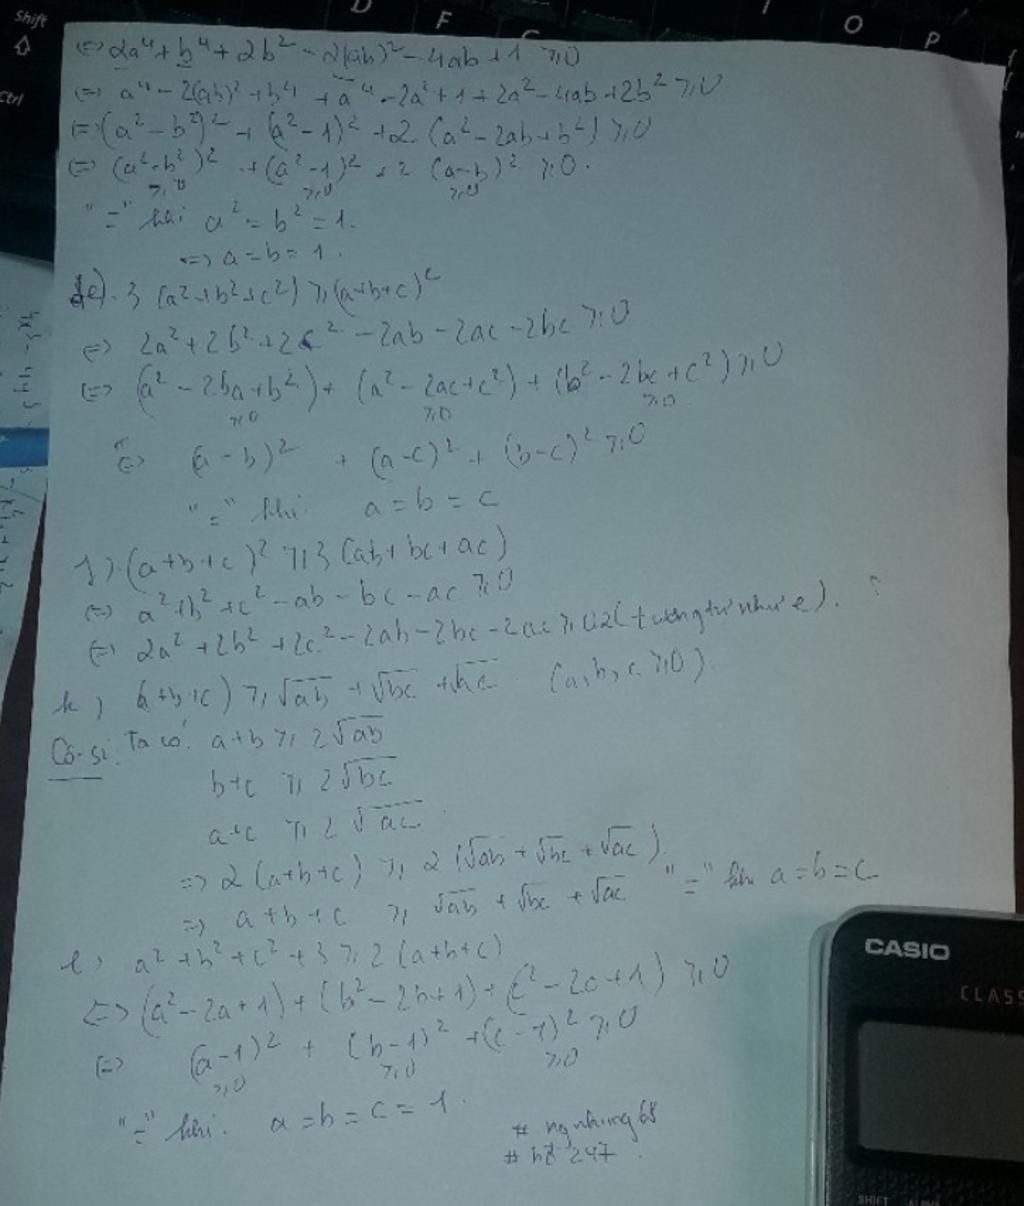 Shift
D
F
O
P
Ctrl
<=> 2a⁴ + b⁴ + 2b² - 2(ab)² - 4ab + 1 ≥ 0
<=> a⁴ - 2(ab)² + b⁴ + a⁴ - 2a² + 1 + 2a² - 4ab + 2b² ≥ 0
<=> (a² - b²)² + (a² - 1)² + 2. (a² - 2ab + b²) ≥ 0
<=> (a² - b²)² + (a² - 1)² + 2 (a - b)² ≥ 0.
≥0 ≥0 ≥0
"=" khi a² = b² = 1.
<=> a = b = 1.
e) 3 (a² + b² + c²) ≥ (a+b+c)²
<=> 2a² + 2b² + 2c² - 2ab - 2ac - 2bc ≥ 0
<=> (a² - 2ba + b²) + (a² - 2ac + c²) + (b² - 2bc + c²) ≥ 0
≥0 ≥0 ≥0
<=> (a - b)² + (a - c)² + (b - c)² ≥ 0
"=" khi a = b = c
(a + b + c)² ≥ 3 (ab + bc + ac)
<=> a² + b² + c² - ab - bc - ac ≥ 0
<=> 2a² + 2b² + 2c² - 2ab - 2bc - 2ac ≥ (tương tự như e).
k) (a+b+c) ≥ √ab + √bc + √ac (a,b,c ≥ 0)
Cô-si: Ta có: a+b ≥ 2√ab
b+c ≥ 2√bc
a+c ≥ 2√ac
=> 2 (a+b+c) ≥ 2 (√ab + √bc + √ac)
=> a + b + c ≥ √ab + √bc + √ac "=" khi a = b = c
l) a² + b² + c² + 3 ≥ 2 (a+b+c)
<=> (a² - 2a + 1) + (b² - 2b + 1) + (c² - 2c + 1) ≥ 0
<=> (a - 1)² + (b - 1)² + (c - 1)² ≥ 0
≥0 ≥0 ≥0
"=" khi: a = b = c = 1.
# ngnhung68
# h7 247.
CASIO
CLASS
SHIFT